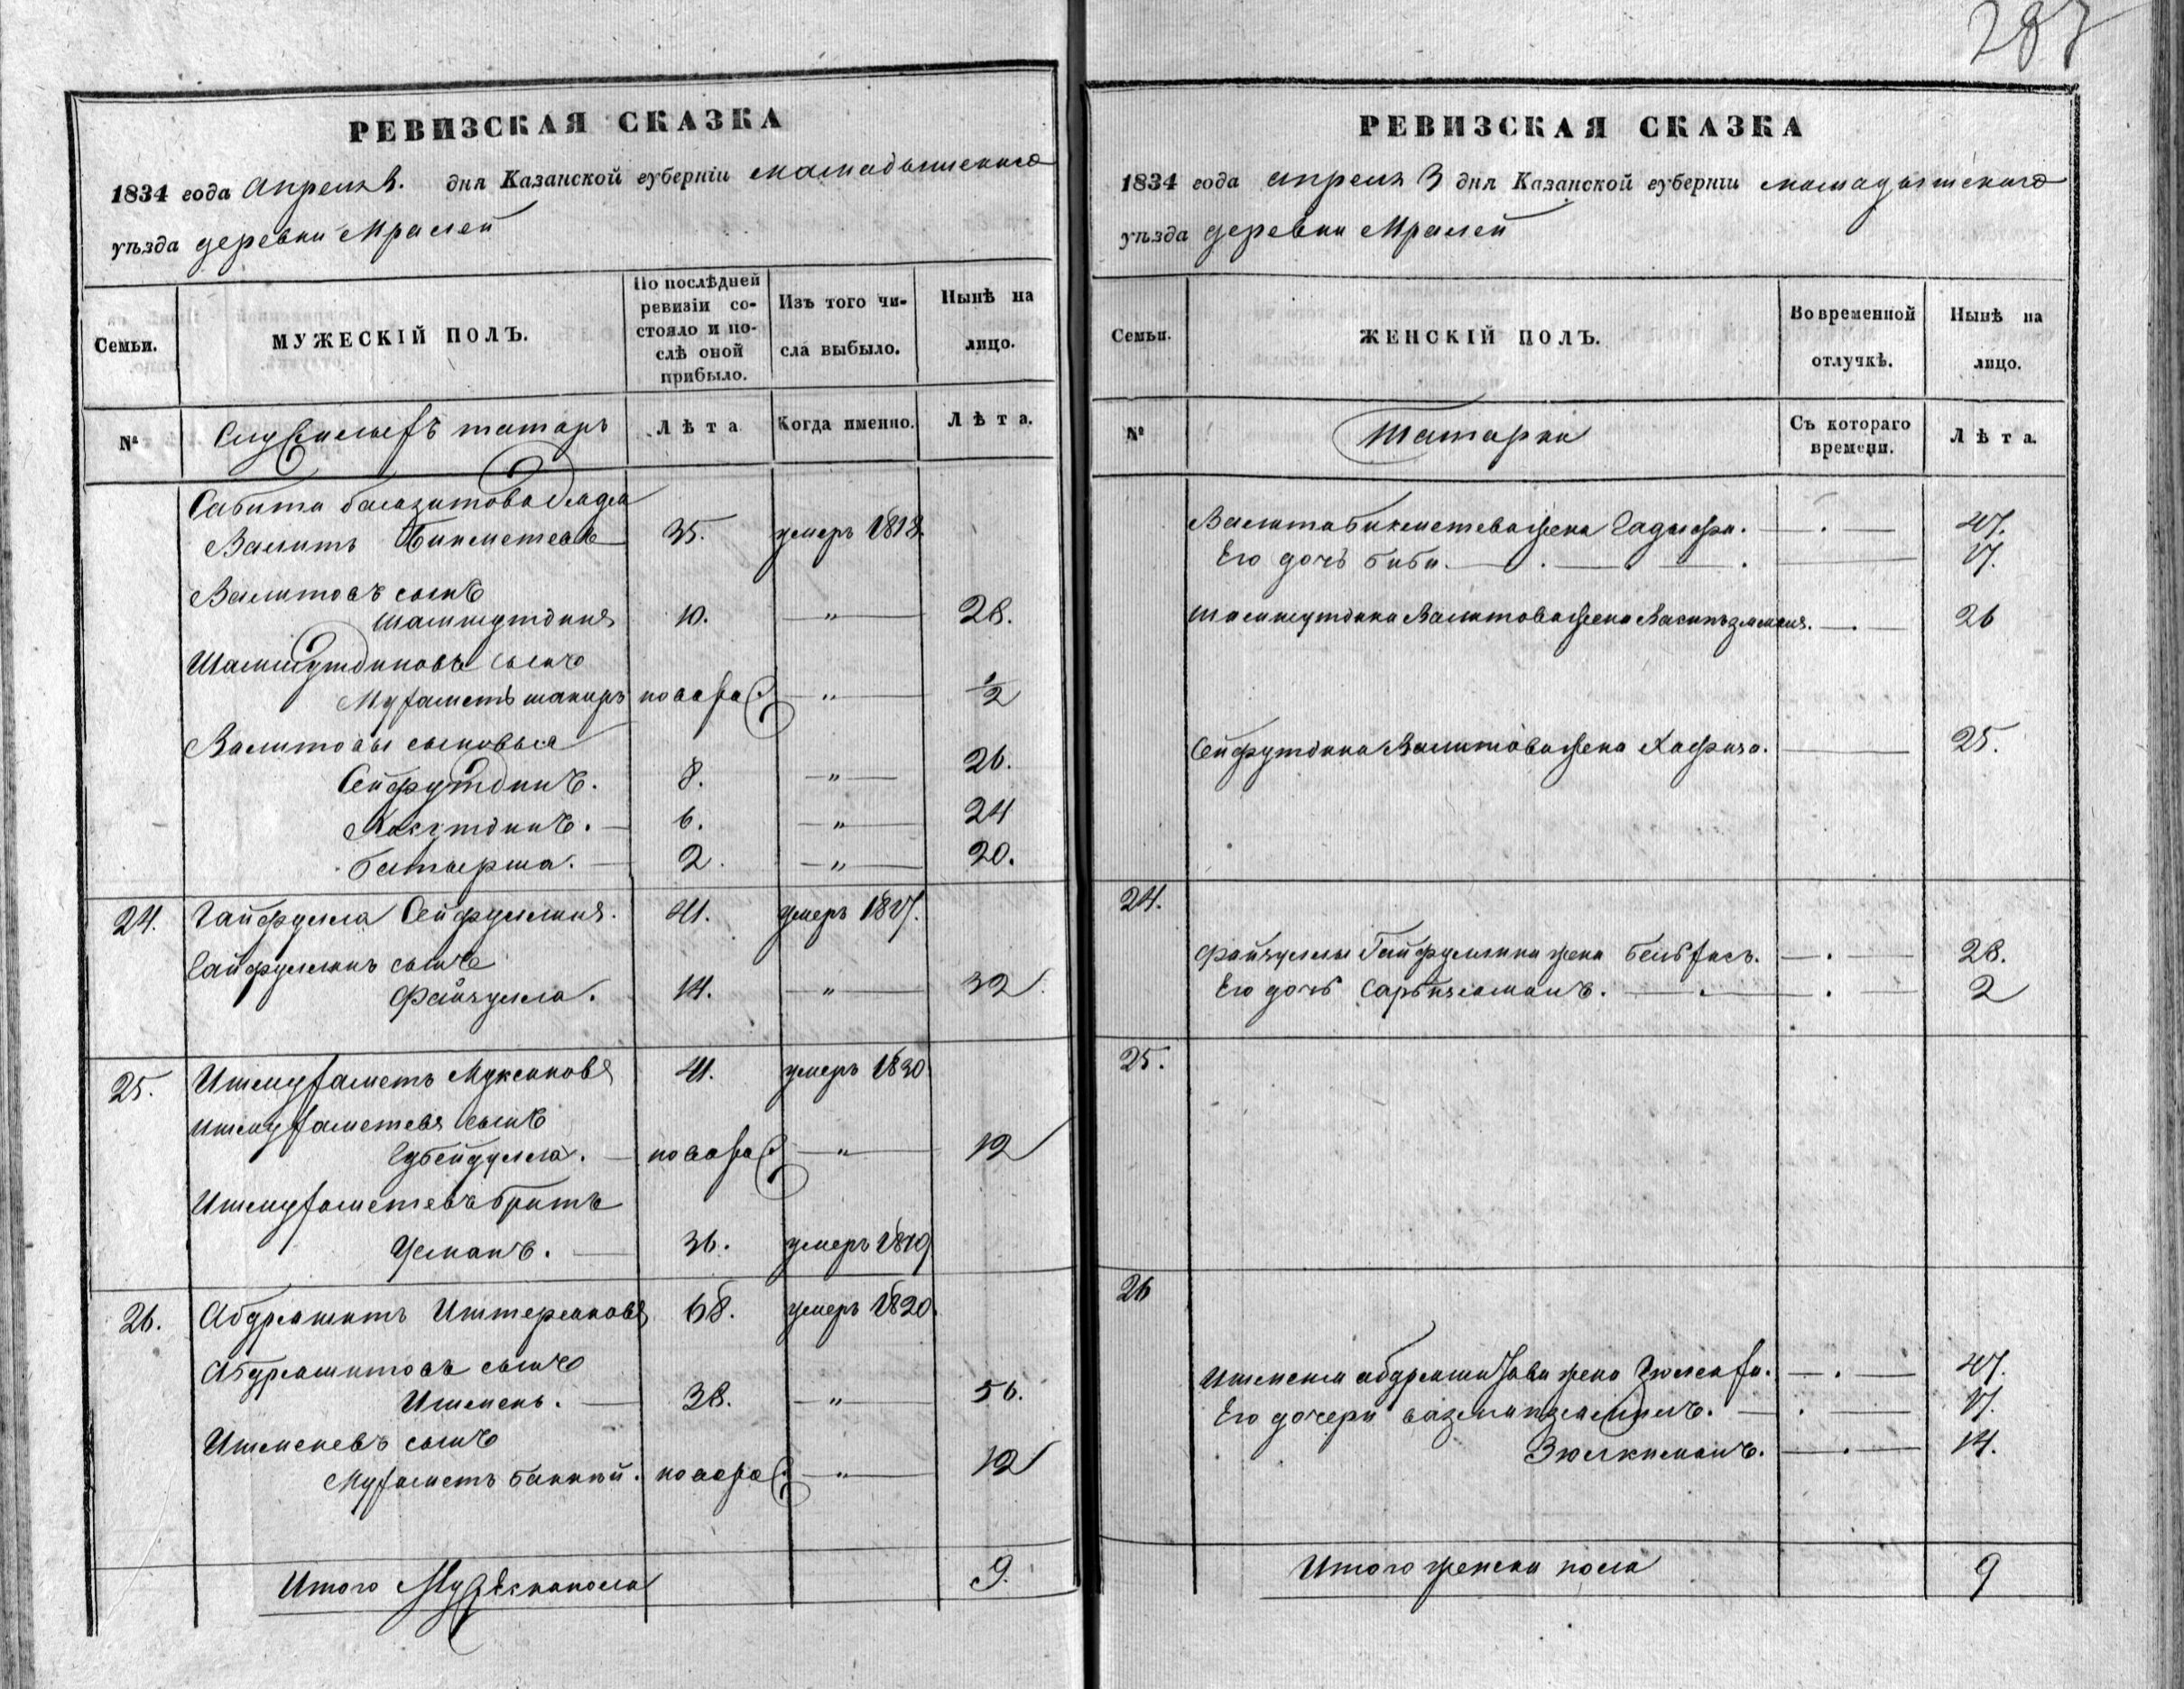 287
РЕВИЗСКАЯ СКАЗКА
1834 года апреля 3. дня Казанской губерніи мамадышскаго
уѣзда деревни Мралей
Семьи.
МУЖЕСКІЙ ПОЛЪ.
По послѣдней ревизіи состояло и послѣ оной прибыло.
Изъ того числа выбыло.
Нынѣ на лицо.
№
Служилыхъ татаръ
Лѣта
Когда именно.
Лѣта.
Сабита баязитова дядя
Валитъ Бикметевъ 35. умеръ 1818.
Валитовъ сынъ
Шамшутдинъ 10. „ 28.
Шамшутдиновъ сынъ
Мухаметъ шакиръ новорож: „ ½
Валитовы сыновья
Сейфутдинъ. 8. „ 26.
6. „ 24
Батырша. 2. „ 20.
24. Гайфулла Сейфуллинъ. 41. умеръ 1827.
Гайфуллинъ сынъ
Файзулла. 14. „ 32
25. Ишмухаметъ Муксиновъ 41. умеръ 1830
Ишмухаметевъ сынъ
Губейдулла. новорож: „ 12
Ишмухаметевъ братъ
Усманъ. 36. умеръ 1819
26. Абдрашитъ Иштеряковъ 68. умеръ 1820.
Абдрашитовъ сынъ
Ишмень. 38. „ 56.
Ишменевъ сынъ
Мухаметъ новорож: „ 12
Итого Мужеска пола 9.
РЕВИЗСКАЯ СКАЗКА
1834 года апреля 3 дня Казанской губерніи мамадышскаго
уѣзда деревни Мралей
Семьи.
ЖЕНСКІЙ ПОЛЪ.
Во временной отлучкѣ.
Нынѣ на лицо.
№
Татарки
Съ котораго времени.
Лѣта.
Валита бикметева жена 47.
Его дочь биби. 17.
Шамшутдина Валитова жена 26
Сейфутдина Валитова жена Хафиза. 25.
24.
Файзуллы Гайфуллина жена 28.
Его дочь 2
25.
26
Ишменя абдрашитова жена 47.
Его дочери 17.
Зюлкиманъ. 14.
Итого женска пола 9